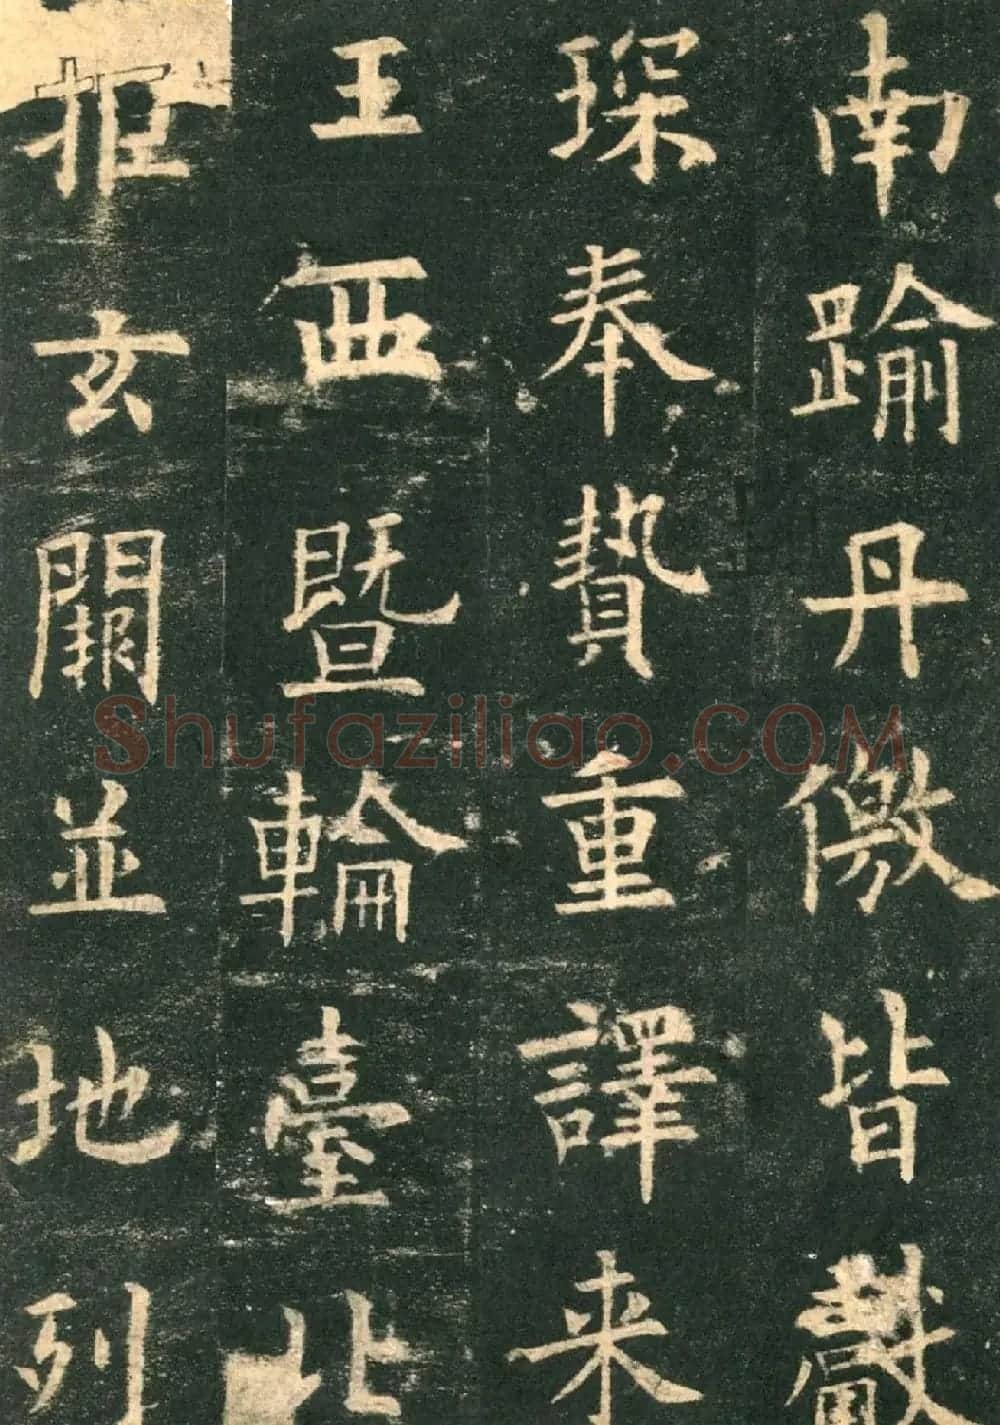 南踰丹儌皆獻
琛奉贄重譯来
王西暨輪臺北
拒玄闕並地列
Shufaziliao.COM